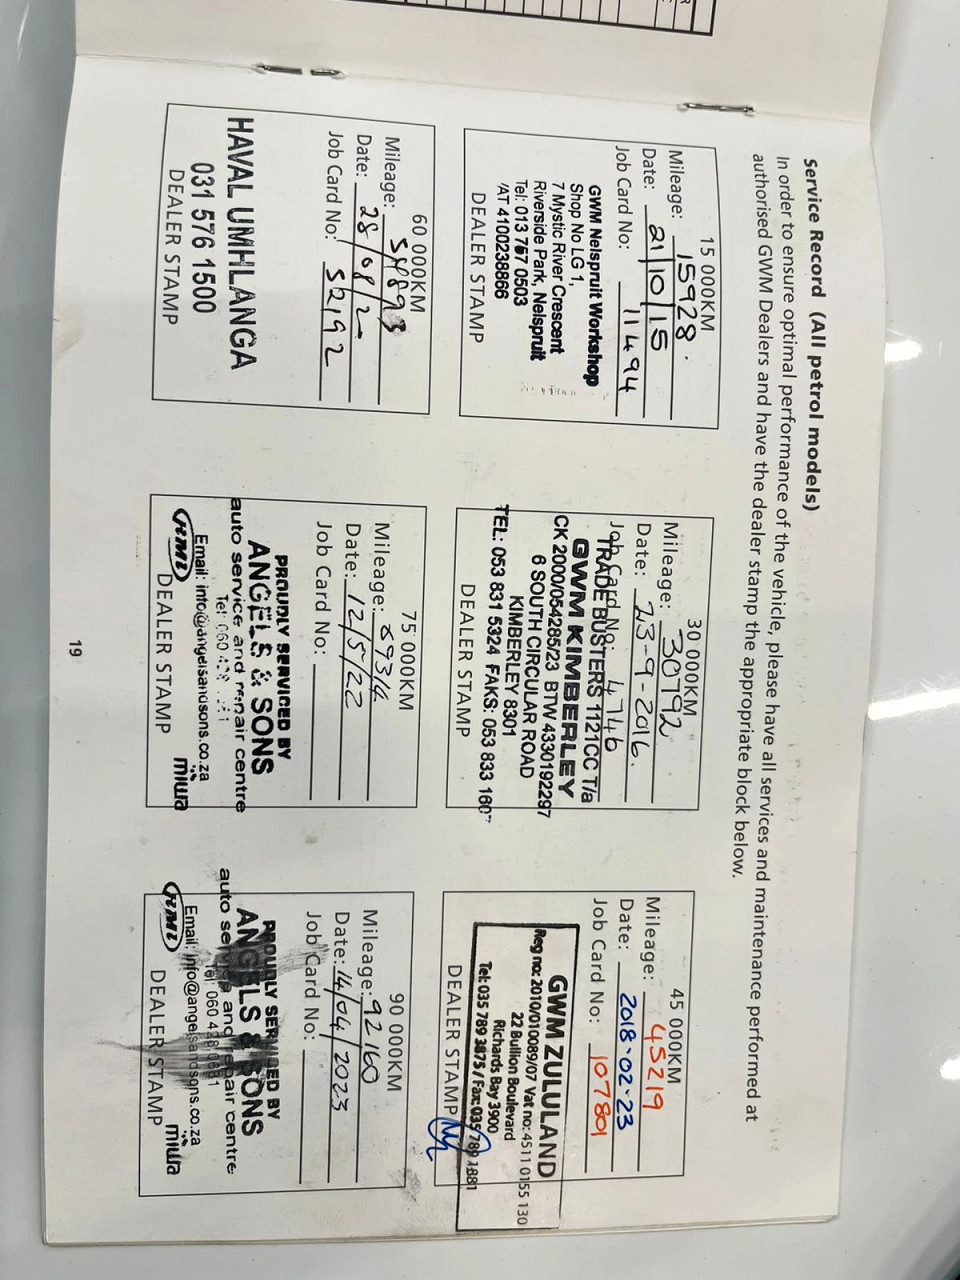 Service Record (All petrol models)
In order to ensure optimal performance of the vehicle, please have all services and maintenance performed at
authorised GWM Dealers and have the dealer stamp the appropriate block below.
15 000KM
Mileage: 15928.
Date: 21/10/15
Job Card No: 11494
GWM Nelspruit Workshop
Shop No LG 1,
7 Mystic River Crescent
Riverside Park, Nelspruit
Tel: 013 767 0503
VAT 4100238866
DEALER STAMP
30 000KM
Mileage: 30792
Date: 23-9-2016.
Job Card No: 4746
TRADE BUSTERS 1121CC T/a
GWM KIMBERLEY
CK 2000/054285/23 BTW 4330192297
6 SOUTH CIRCULAR ROAD
KIMBERLEY 8301
TEL: 053 831 5324 FAKS: 053 833 160
DEALER STAMP
45 000KM
Mileage: 45219
Date: 2018-02-23
Job Card No: 107801
GWM ZULULAND
Reg no: 2010/010089/07 Vat no: 4511 0155 130
22 Bullion Boulevard
Richards Bay 3900
Tel: 035 789 3875 / Fax: 035 789 1881
DEALER STAMP
60 000KM
Mileage:
Date: 28/08/2
Job Card No: 52192
HAVAL UMHLANGA
031 576 1500
DEALER STAMP
75 000KM
Mileage:
Date: 12/5/22
Job Card No:
PROUDLY SERVICED BY
ANGELS & SONS
auto service and repair centre
Tel: 060
Email: info@angelsandsons.co.za
RMI
miwa
DEALER STAMP
90 000KM
Mileage: 92160
Date: 14/04/2023
Job Card No:
PROUDLY SERVICED BY
ANGELS & SONS
auto service and repair centre
Tel: 060 428 0681
Email: info@angelsandsons.co.za
RMI
miwa
DEALER STAMP
19